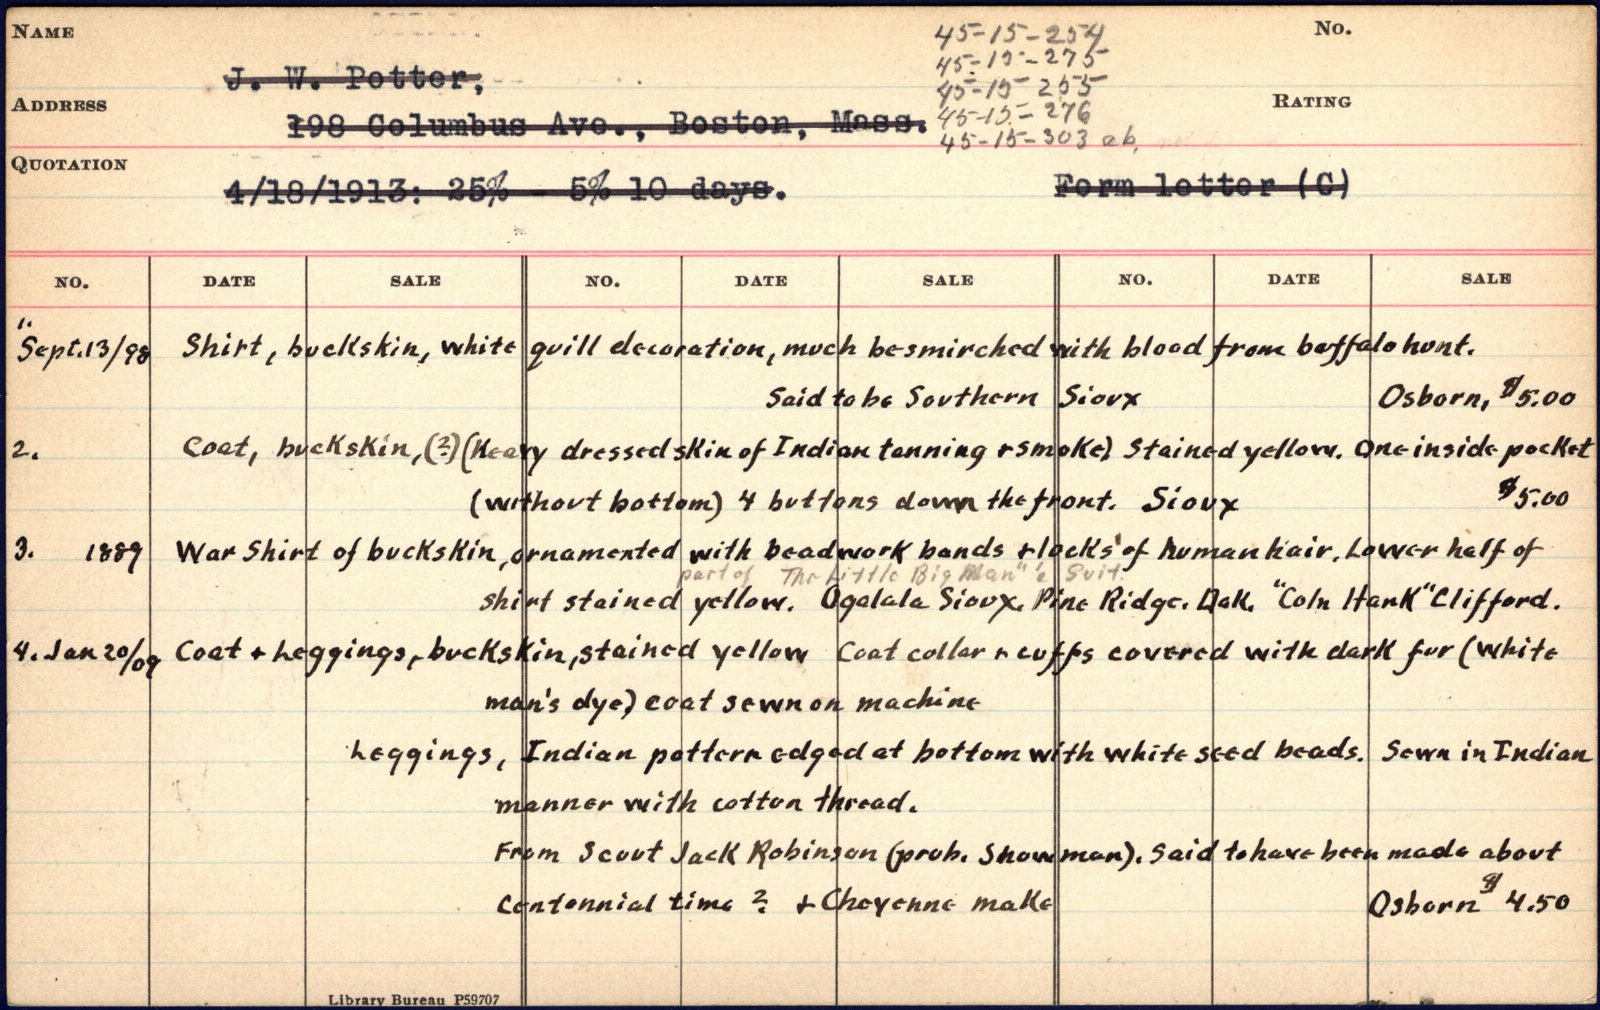 NAME
No.
45-15-254
45-15-275
J. W. Potter,
45-15 255
ADDRESS
RATING
198 Columbus Ave., Boston, Mass.
45-15-276
45-15-303 ab,
QUOTATION
4/18/1913: 25% - 5% 10 days. Form letter (C)
NO. DATE SALE NO. DATE SALE NO. DATE SALE
1.
Sept.13/98 Shirt, buckskin, white quill decoration, much besmirched with blood from buffalo hunt.
Said to be Southern Sioux Osborn, $5.00
2. Coat, buckskin, (?) (Heavy dressed skin of Indian tanning + smoke) Stained yellow. One inside pocket
(without bottom) 4 buttons down the front. Sioux $5.00
3. 1889 War Shirt of buckskin, ornamented with beadwork bands + locks of human hair. Lower half of
part of The Little Big Man"'s Suit.
shirt stained yellow. Ogalala Sioux. Pine Ridge. Dak. "Coln Hank" Clifford.
4. Jan 20/09 Coat + Leggings, buckskin, stained yellow Coat collar + cuffs covered with dark fur (white
man's dye) coat sewn on machine
Leggings, Indian pattern edged at bottom with white seed beads. Sewn in Indian
manner with cotton thread.
From Scout Jack Robinson (prob. Showman). Said to have been made about
Centennial time ? + Cheyenne make Osborn $4.50
Library Bureau P59707